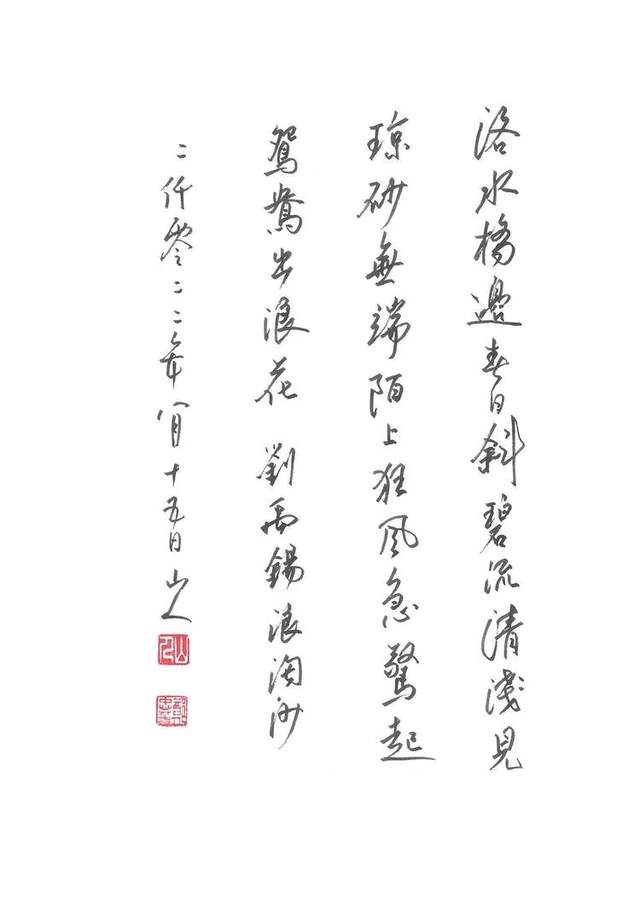 洛水橋邊春日斜碧流清淺見
琼砂無端陌上狂風急驚起
鴛鴦出浪花 劉禹錫浪淘沙
二仟零二二年八月十五日山人
山人